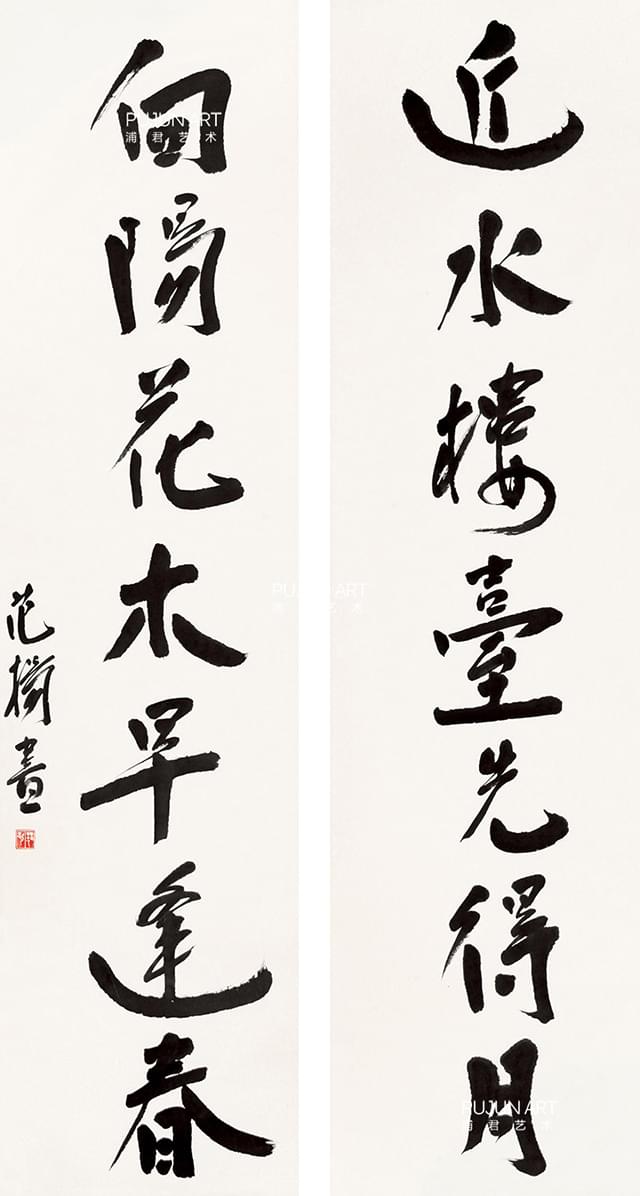 近水樓臺先得月
向陽花木早逢春
范揚書
PUJUN ART
浦君艺术
PUJUN ART
浦君艺术
PUJUN ART
浦君艺术